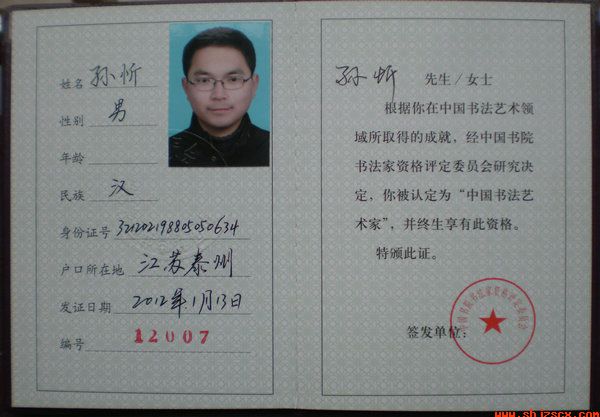 姓名 孙忻
性别 男
年龄
民族 汉
身份证号 321202198805050634
户口所在地 江苏泰州
发证日期 2012年1月13日
编号 12007
孙忻 先生／女士
根据你在中国书法艺术领
域所取得的成就，经中国书院
书法家资格评定委员会研究决
定，你被认定为“中国书法艺
术家”，并终生享有此资格。
特颁此证。
签发单位：
中国书院书法家资格评定委员会
www.sbjzscx.com